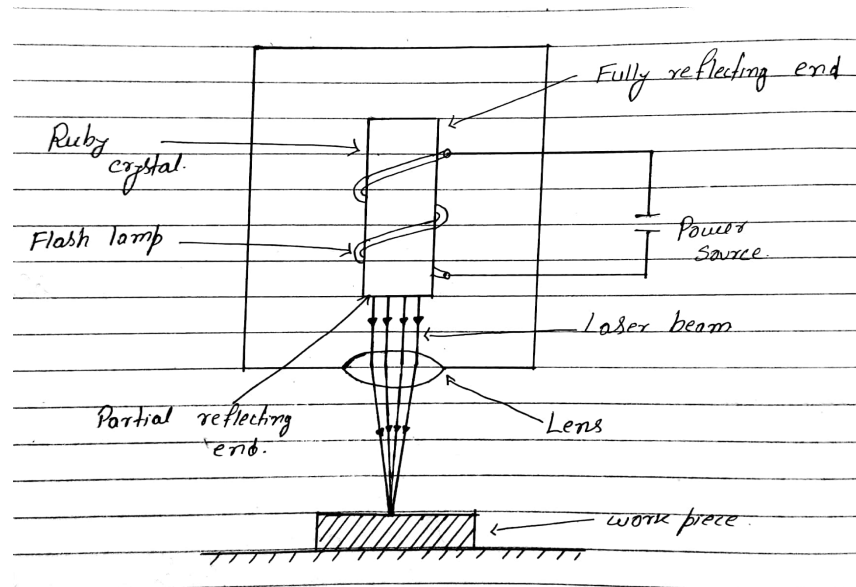 Fully reflecting end
Ruby
crystal.
Flash lamp
Power
Source.
Laser beam
Partial reflecting
end.
Lens
work piece.